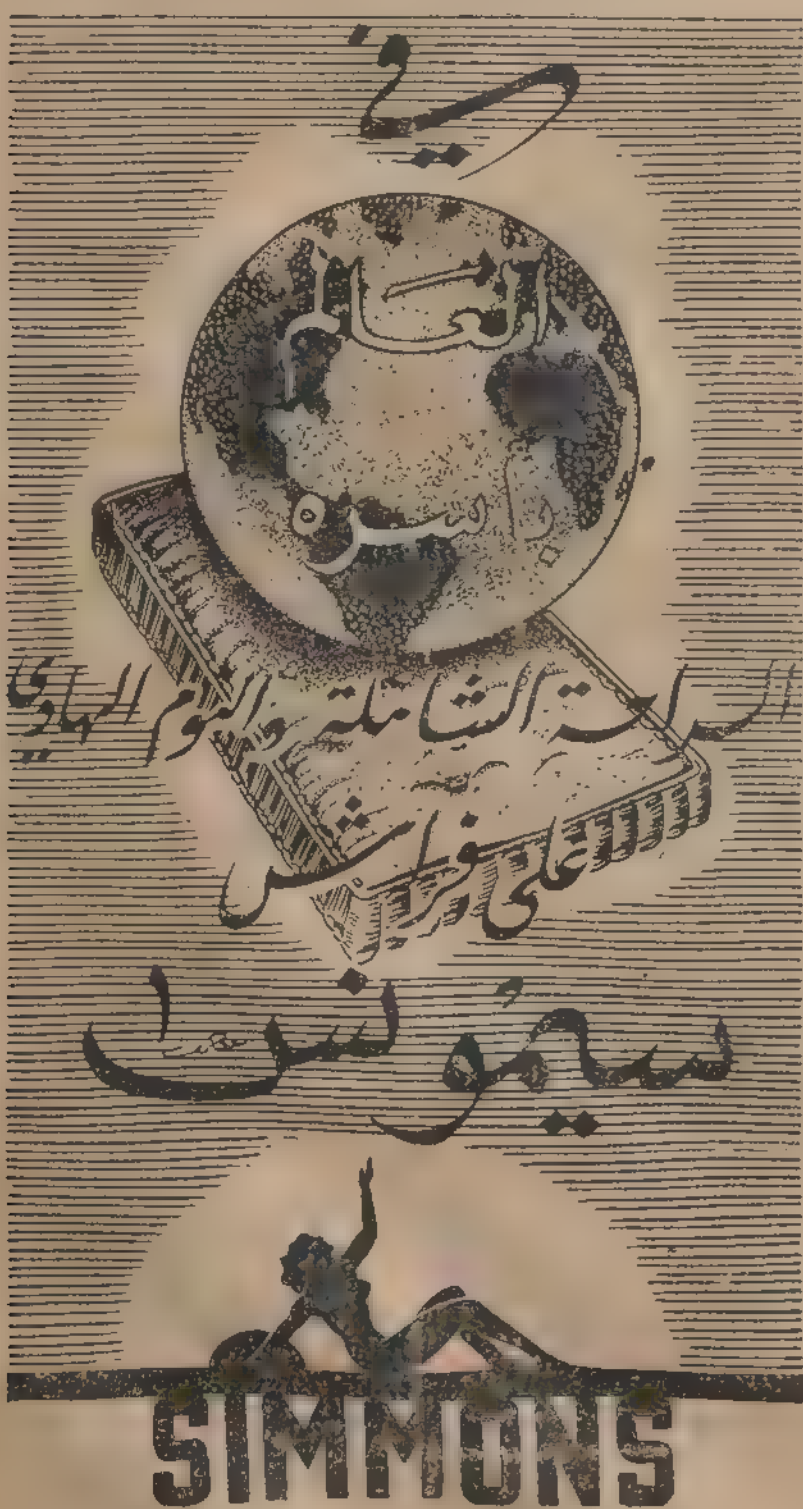 في
العالم
بأسره
الراحة الشاملة والنوم الهادي
على فراش
سيمونس
SIMMONS